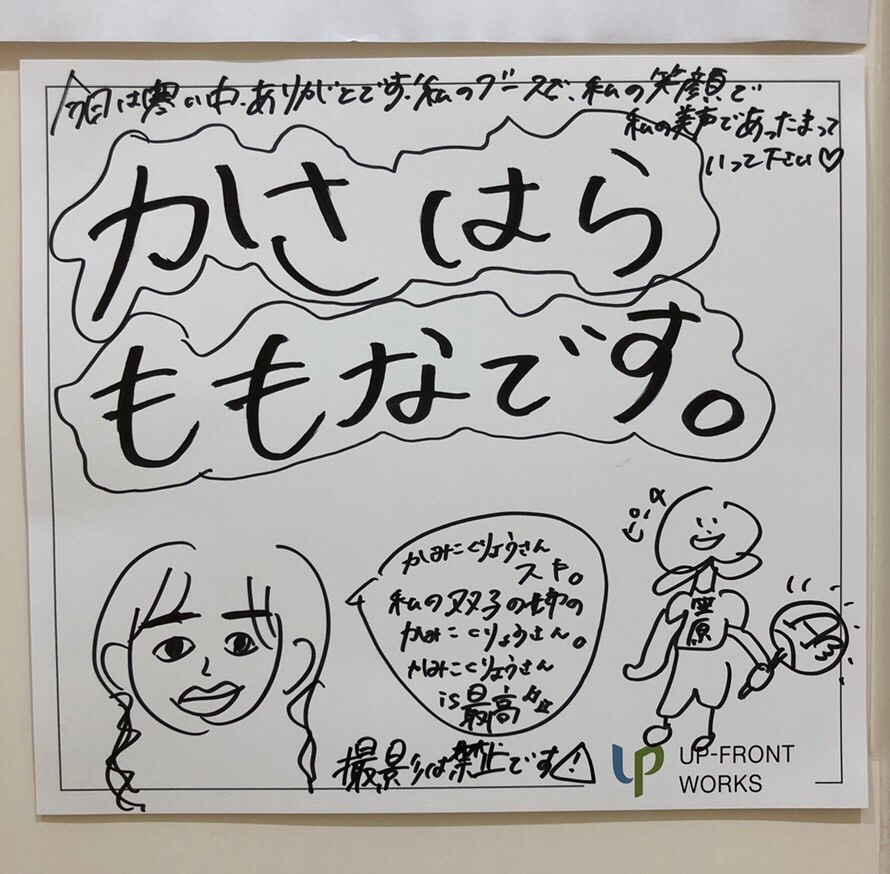 今日は寒い中、ありがとです！私のブースで、私の笑顔で
私の美声であったまって
いって下さい♡
かさはら
ももなです。
かみこくりょうさん
スキ。
私の双子の姉の
かみこくりょうさん。
かみこくりょうさん
is最高
ピース
笠原
撮影は禁止です⚠
UP-FRONT
WORKS